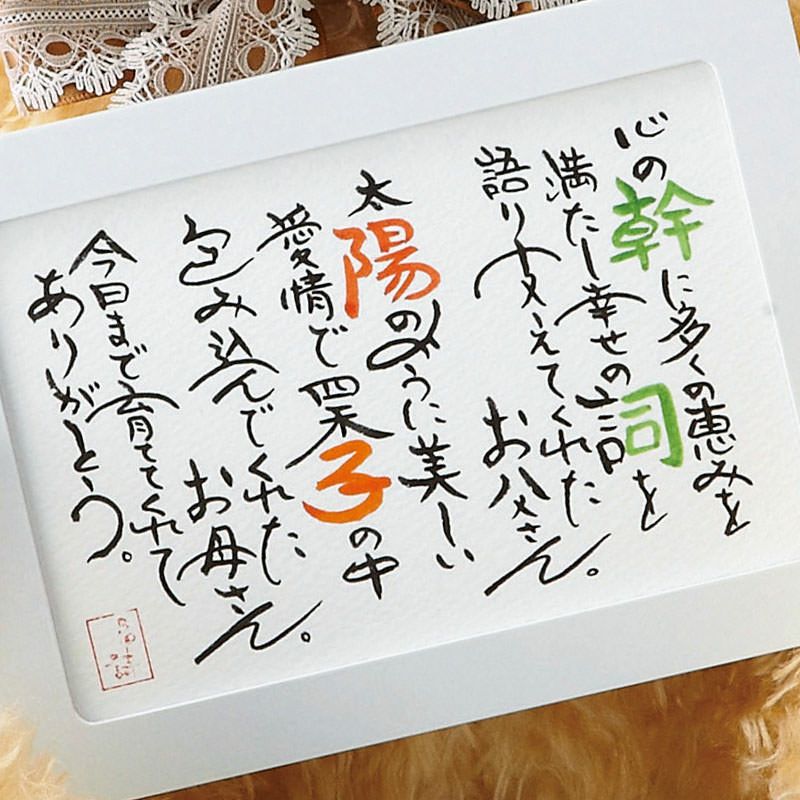 心の幹に多くの恵みを
満たし幸せの詞を
語り支えてくれた
お父さん。
太陽のように美しい
愛情で四季の中
包み込んでくれた
お母さん。
今日まで育ててくれて
ありがとう。